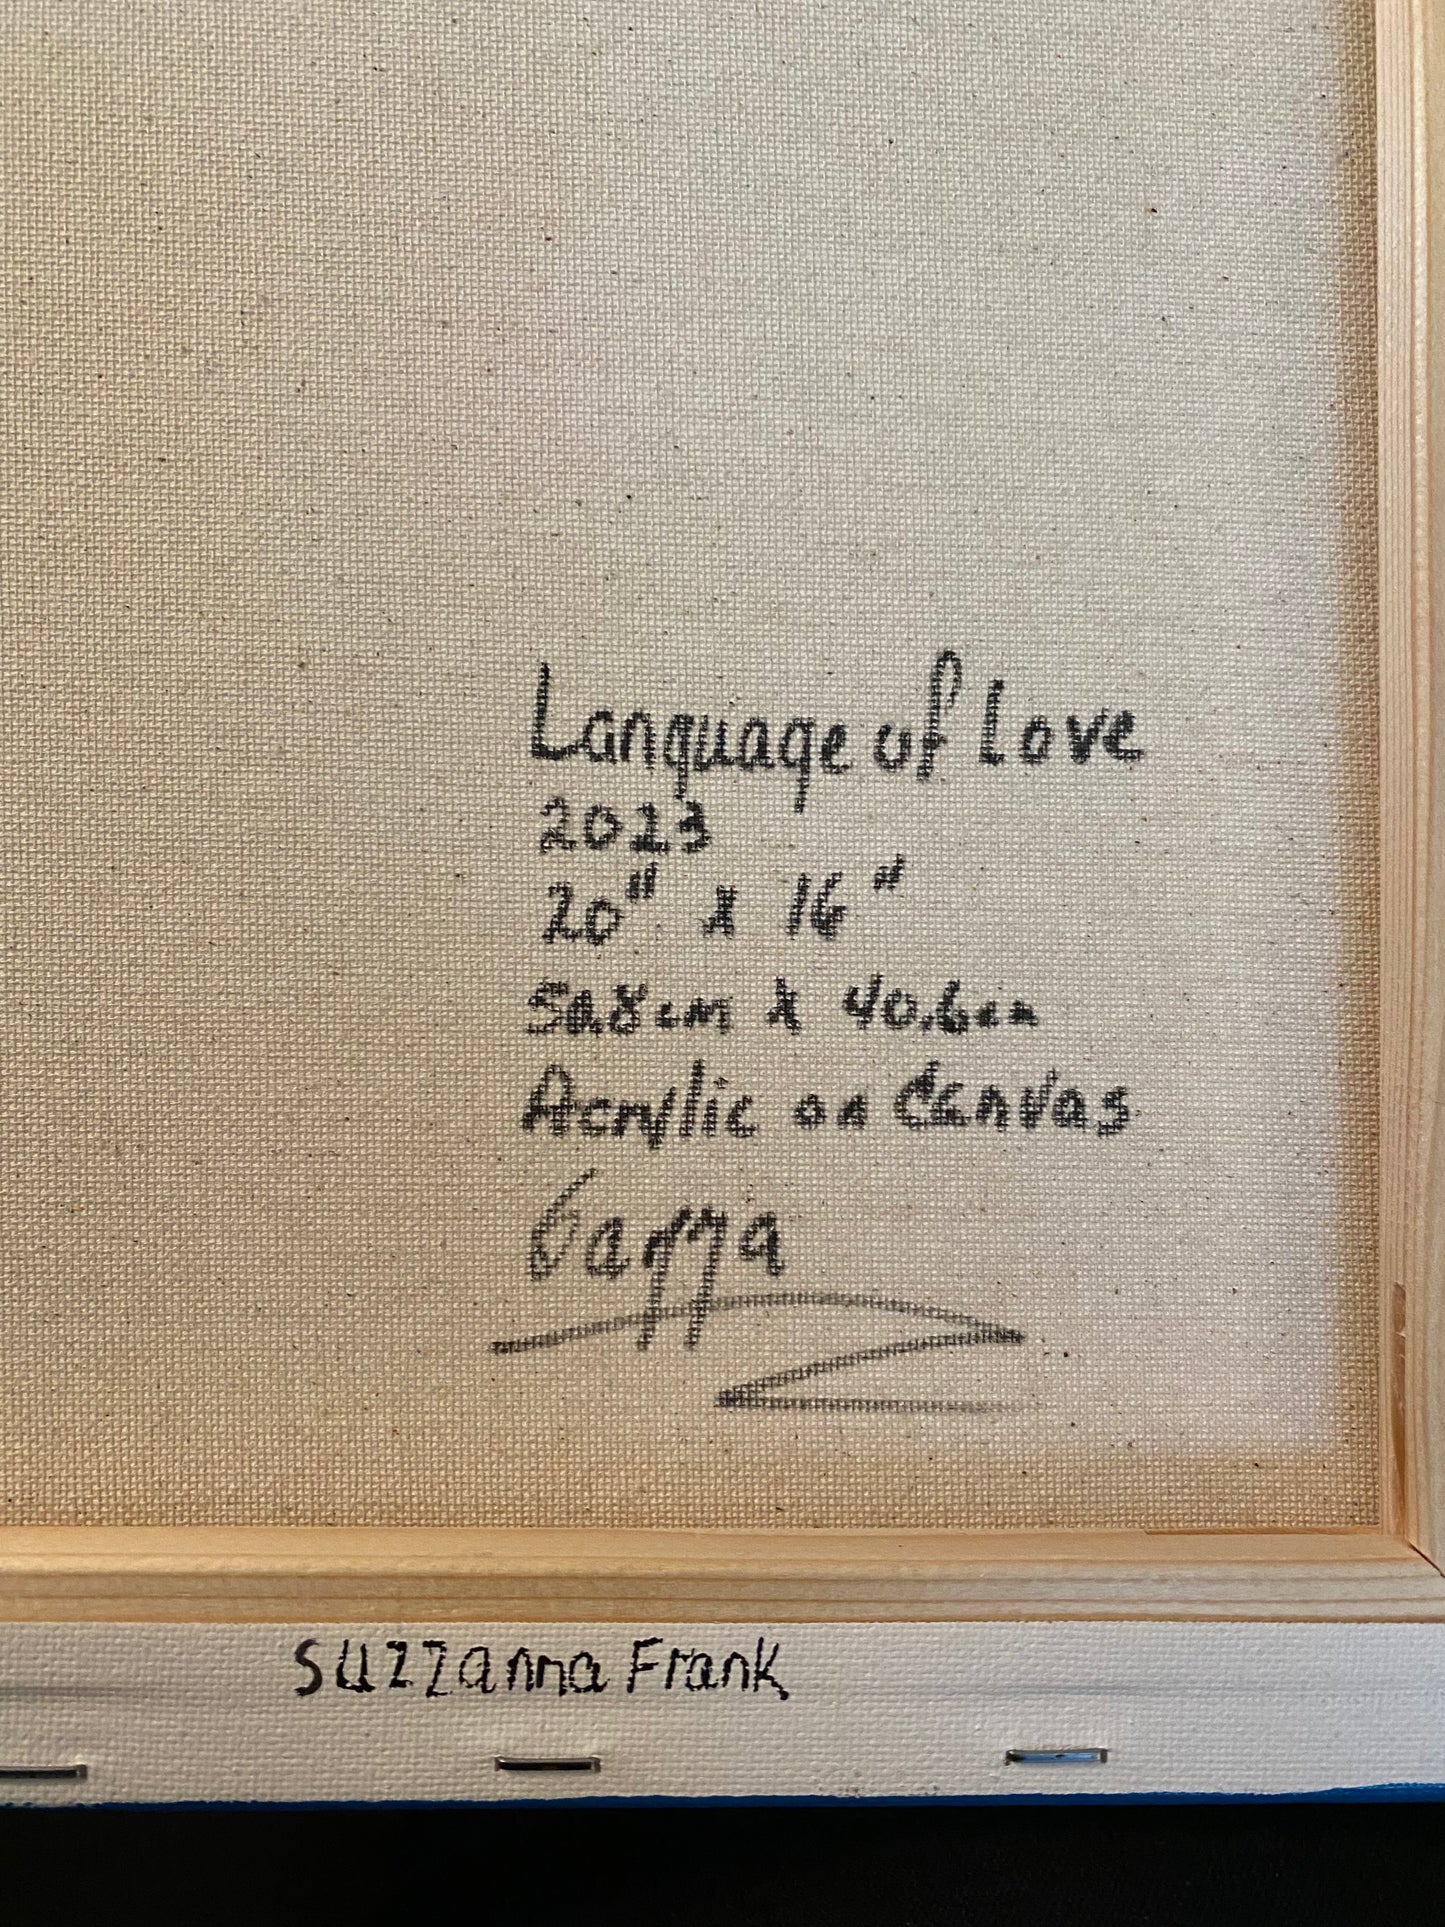 Language of Love
2023
20" x 16"
50.8cm x 40.6cm
Acrylic on Canvas
Suzzanna Frank